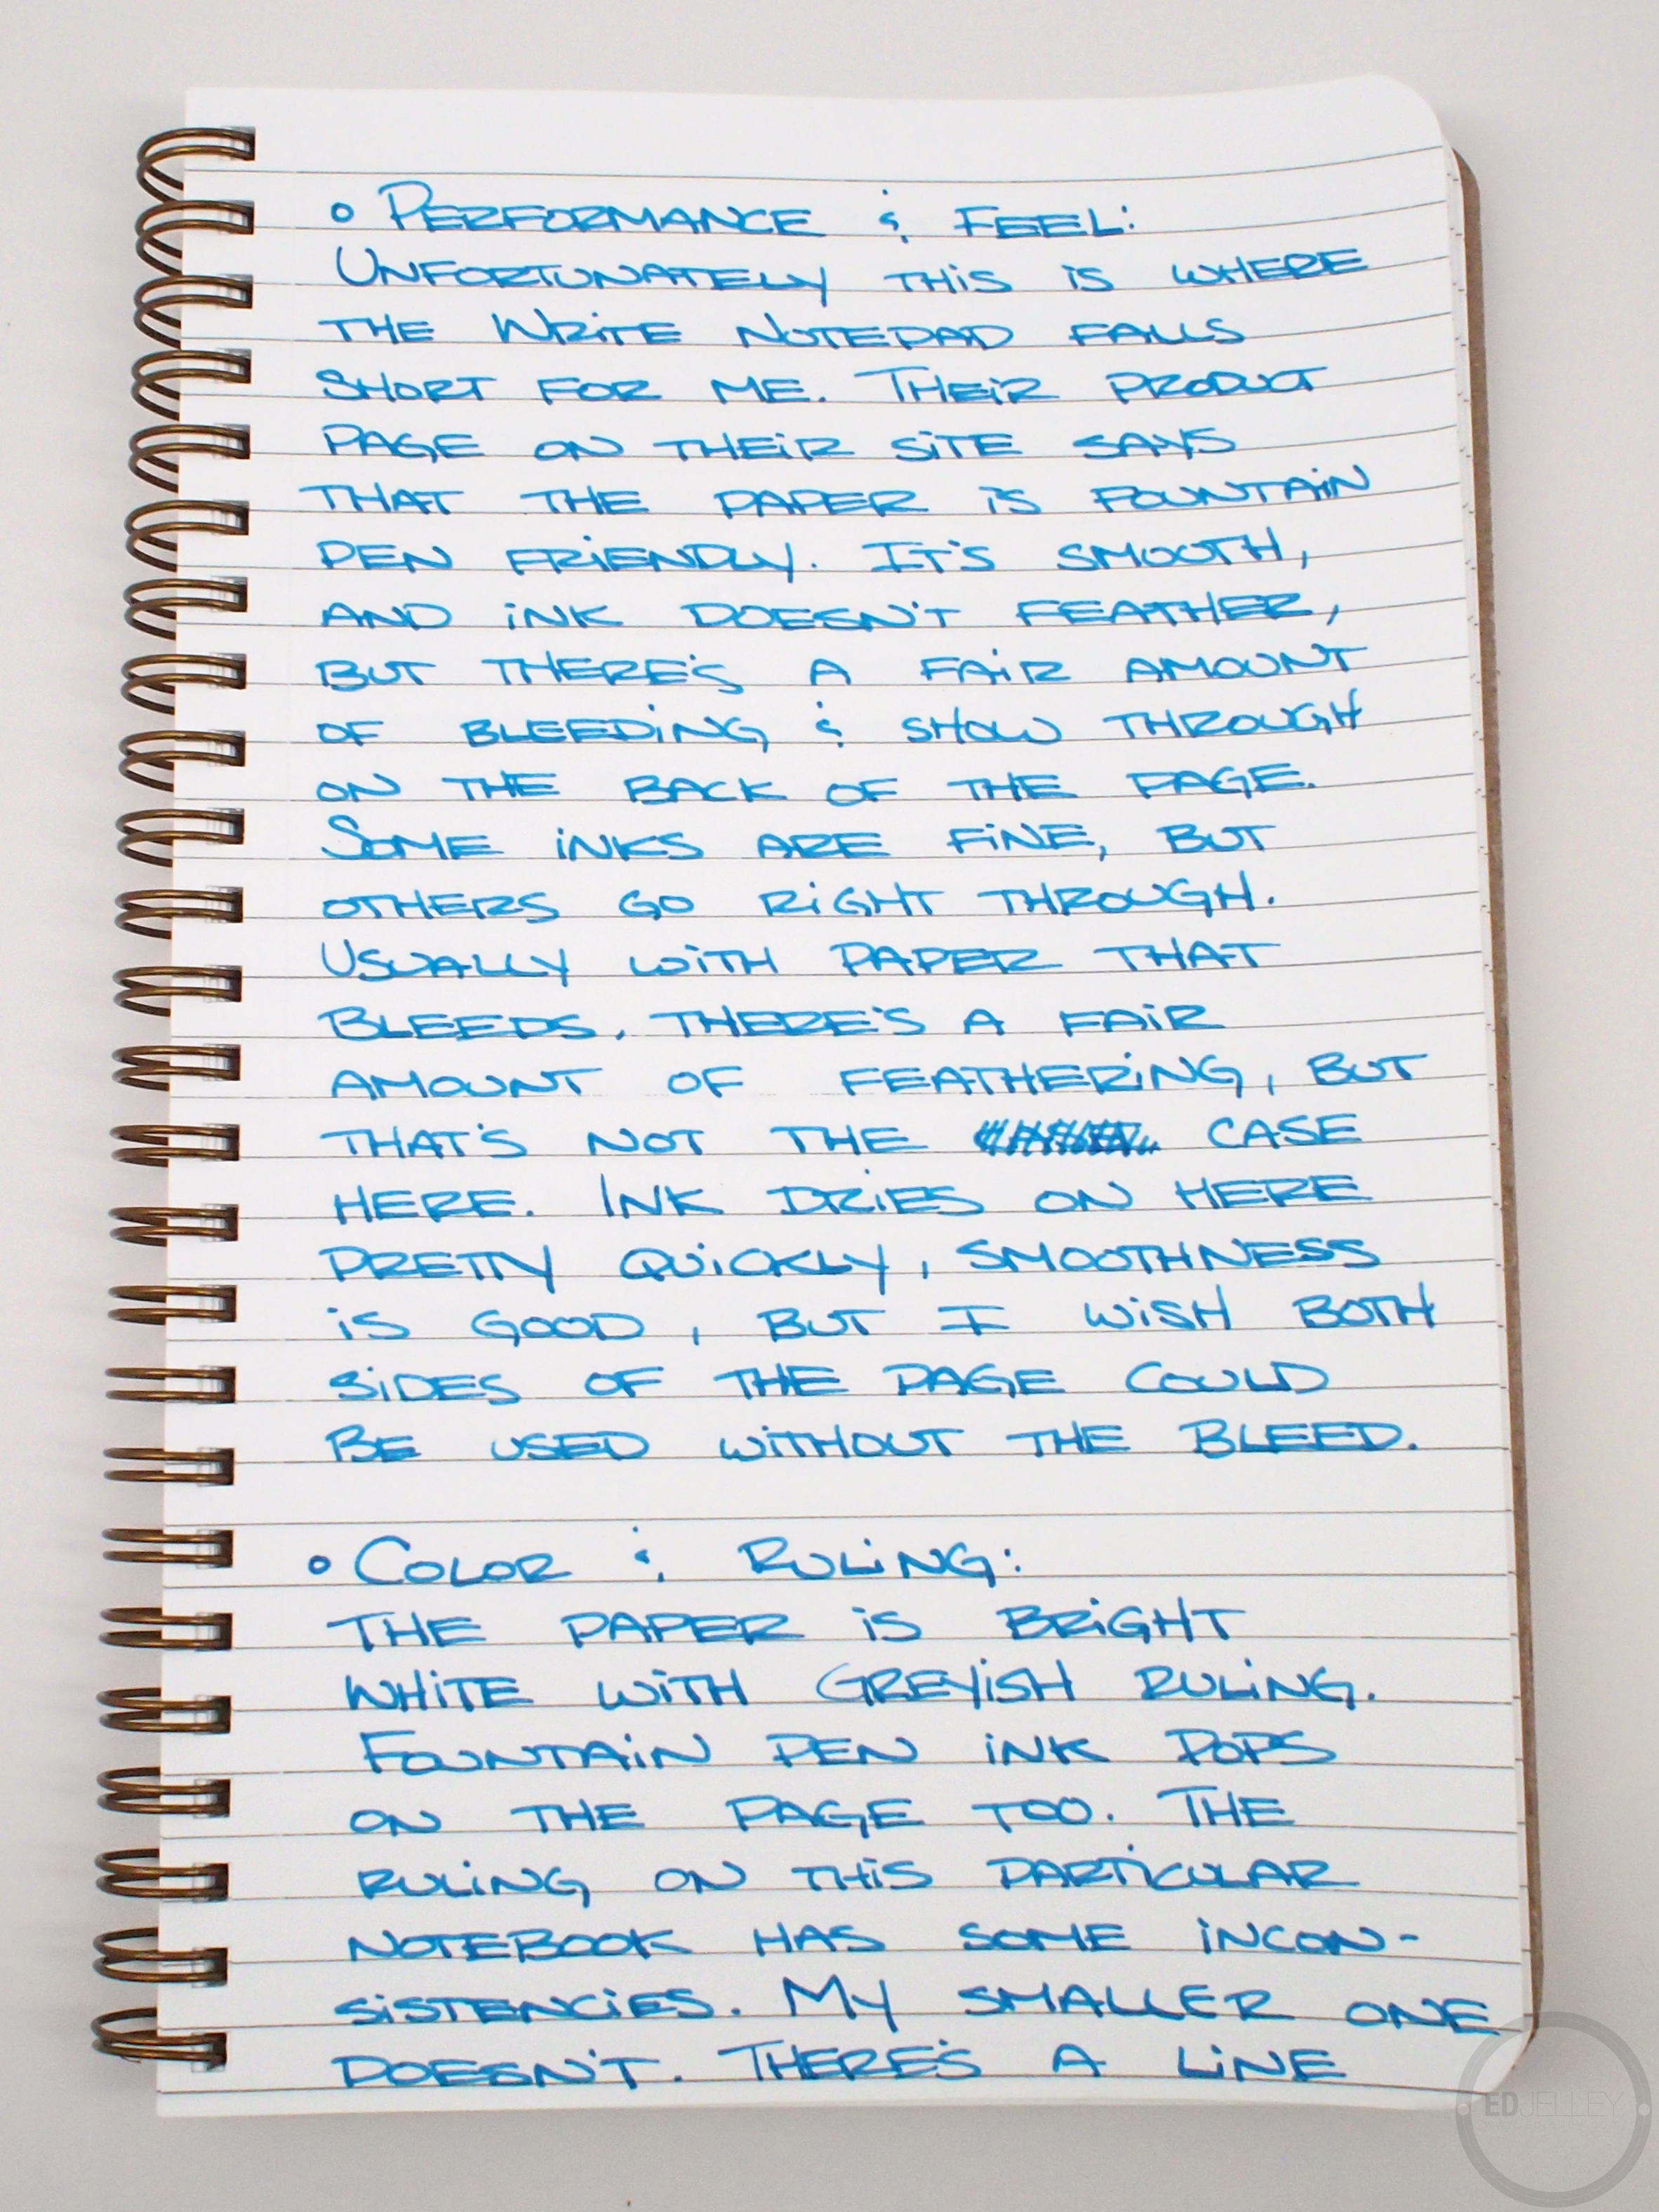 ∘ PERFORMANCE & FEEL:
UNFORTUNATELY THIS IS WHERE
THE WRITE NOTEPAD FALLS
SHORT FOR ME. THEIR PRODUCT
PAGE ON THEIR SITE SAYS
THAT THE PAPER IS FOUNTAIN
PEN FRIENDLY. IT'S SMOOTH,
AND INK DOESN'T FEATHER,
BUT THERE'S A FAIR AMOUNT
OF BLEEDING & SHOW THROUGH
ON THE BACK OF THE PAGE.
SOME INKS ARE FINE, BUT
OTHERS GO RIGHT THROUGH.
USUALLY WITH PAPER THAT
BLEEDS, THERE'S A FAIR
AMOUNT OF FEATHERING, BUT
THAT'S NOT THE CASE
HERE. INK DRIES ON HERE
PRETTY QUICKLY, SMOOTHNESS
IS GOOD, BUT I WISH BOTH
SIDES OF THE PAGE COULD
BE USED WITHOUT THE BLEED.
∘ COLOR & RULING:
THE PAPER IS BRIGHT
WHITE WITH GREYISH RULING.
FOUNTAIN PEN INK POPS
ON THE PAGE TOO. THE
RULING ON THIS PARTICULAR
NOTEBOOK HAS SOME INCON-
SISTENCIES. MY SMALLER ONE
DOESN'T. THERE'S A LINE
EDJELLEY